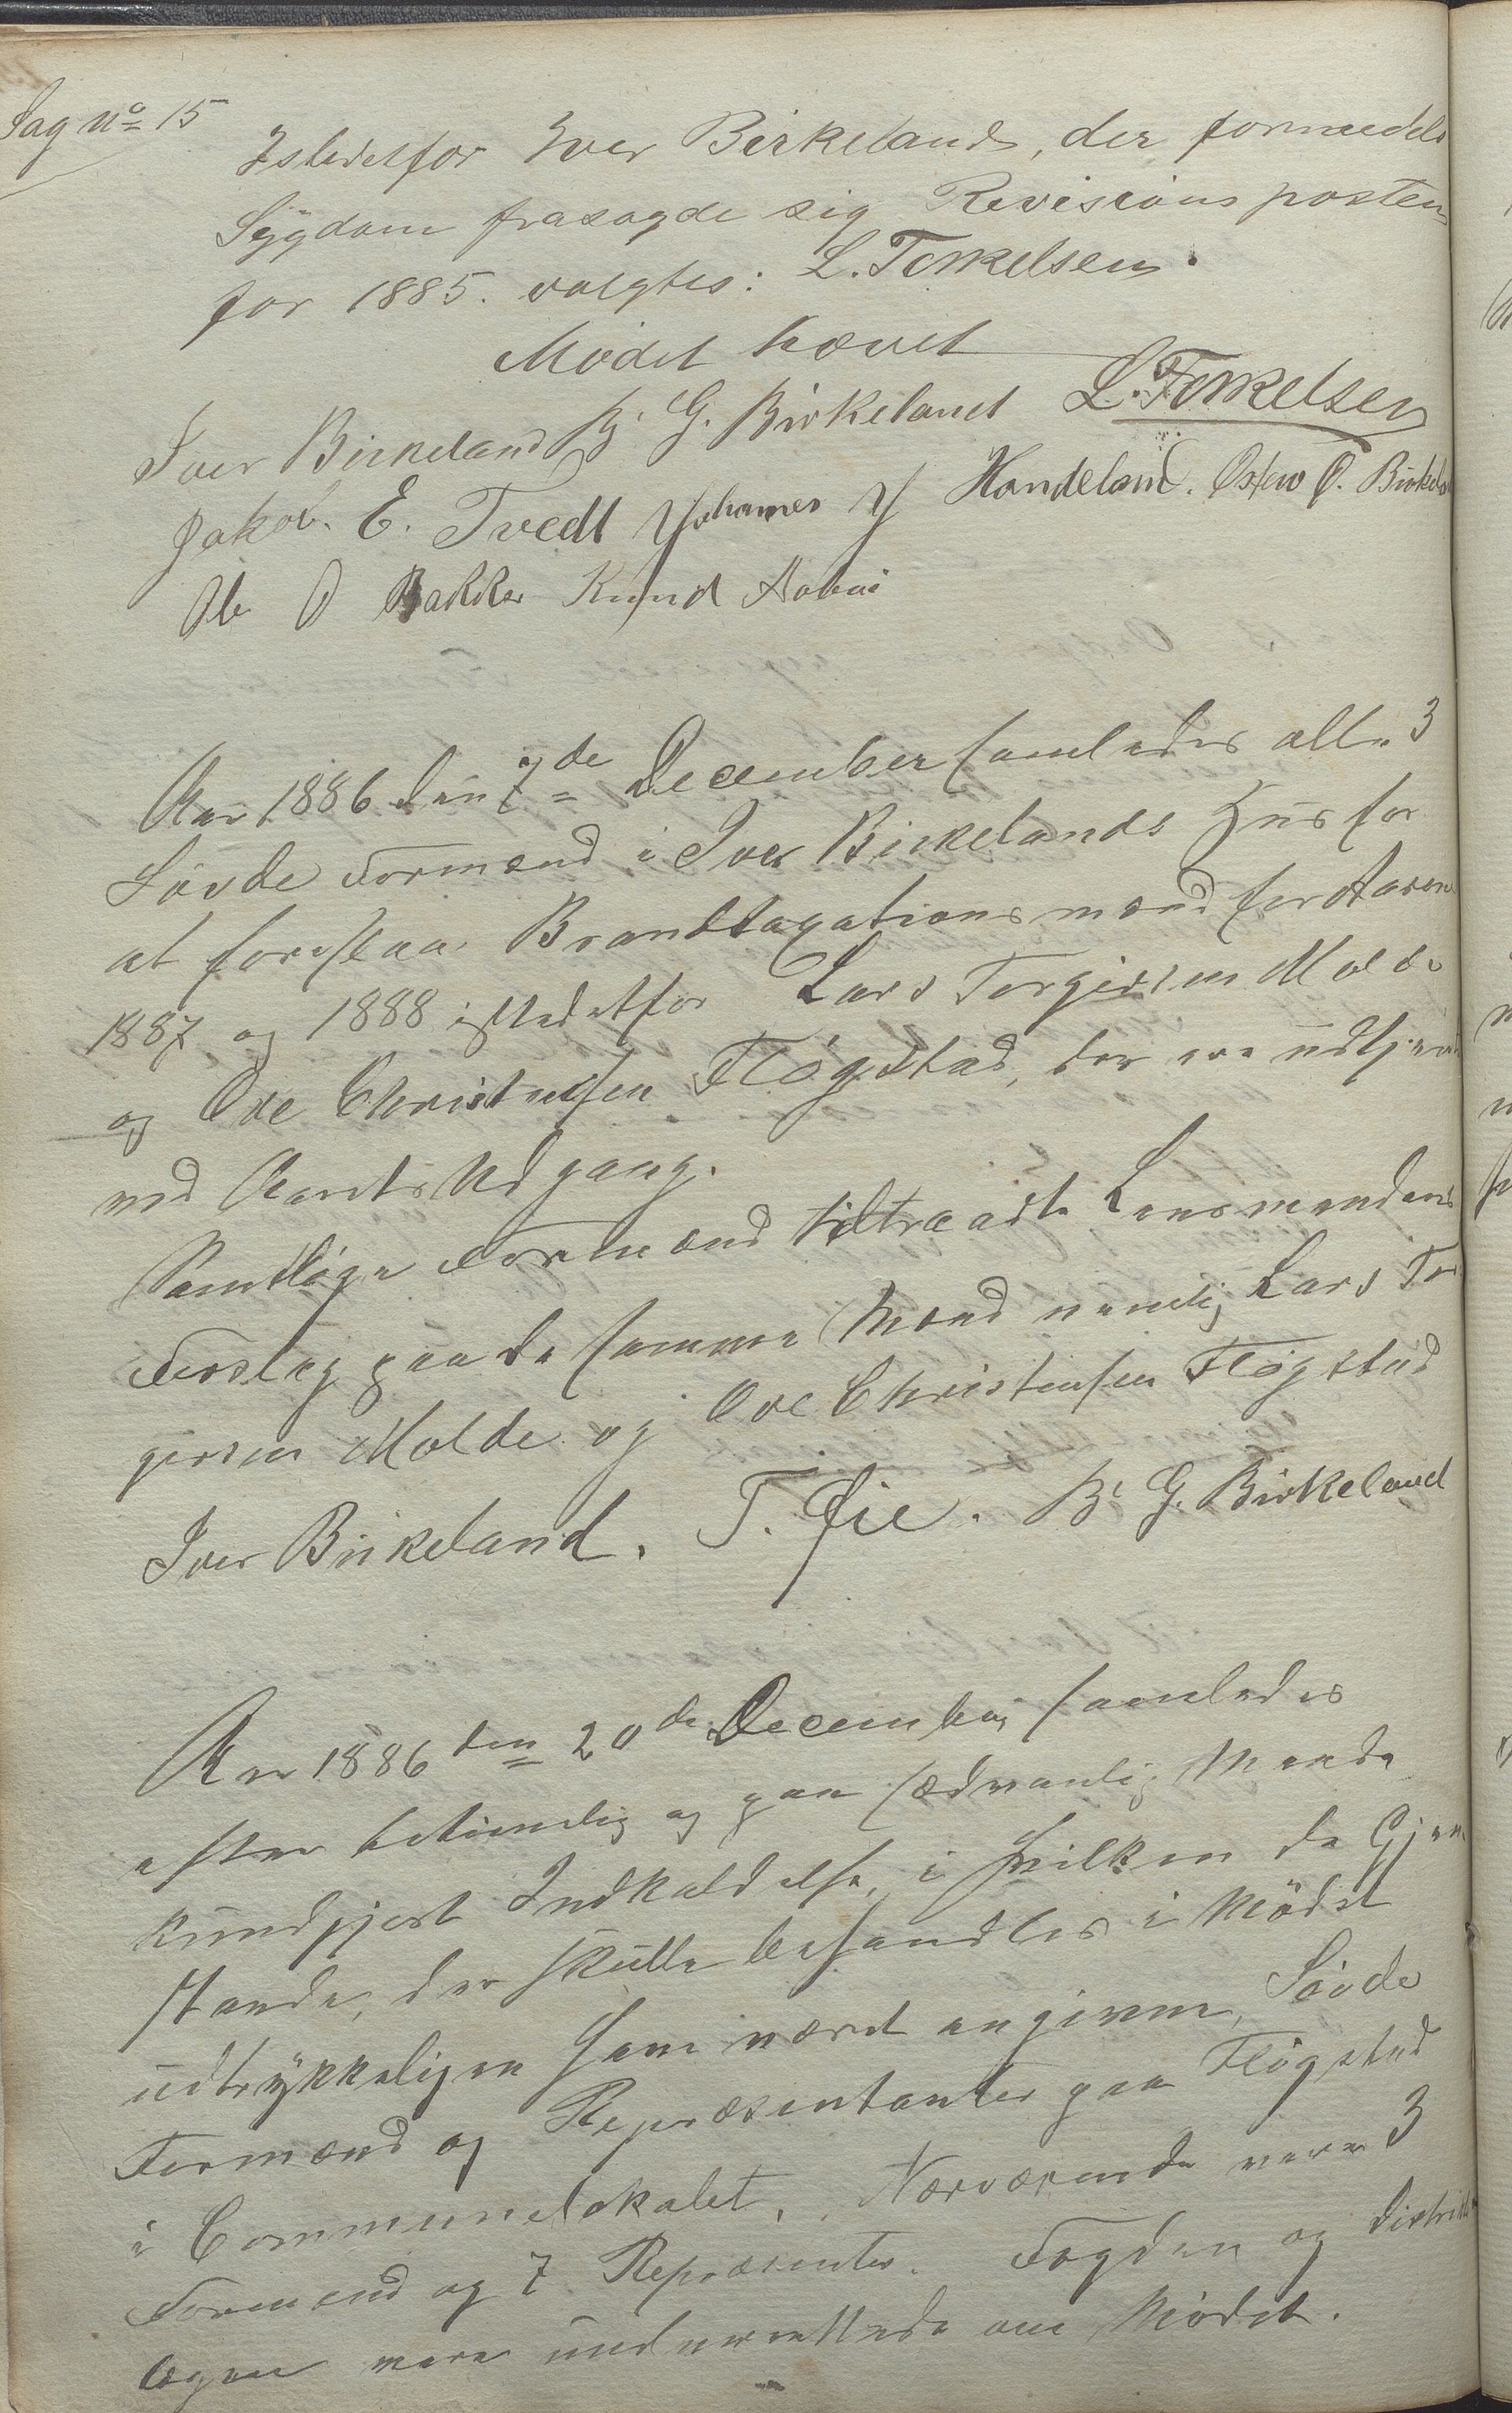 Sag No 15
Istedetfor Iver Birkeland, der formedels
Sygdom frasagde sig Revisions posten
for 1885. valgtes: L. Torkelsen.
Mödet hævet
Iver Birkeland B. G. Birkeland L. Torkelsen
Jakob. E. Tvedt Johannes J Handeland. Osten O. Birkela
Ole O Bakke Knud
Aar 1886 den 7de December samledes alle 3
Søvde Formænd i Iver Birkelands Huus for
at foreslaa Brandtaxationsmænd for Aarene
1887 og 1888 istedetfor Lars Torgersen Molde
og Ove Christensen Fløgstad, der ere udtjent
ved Aarets Udgang.
Samtlige Formænd tiltraadte Lensmandens
Forslag paa de samme Mænd nemlig Lars Tor
gersen Molde og Ove Christensen Fløgstad
Iver Birkeland. T. Øie. B. G. Birkeland
Aar 1886 den 20de December samledes
efter betimelig og paa sædvanlig Maade
kundgjort Indkaldelse, i hvilken de Gjen
stande, der skulle behandles i Mödet
udtrykkeligen have været angivne, Søvde
Formænd og Repræsentanter paa Fløgstad
i Communelokalet. Nærværende vare 3
Formænd og 7 Repræsenter. Fogden og Distrikts
lægen vare underrettede om Mödet.